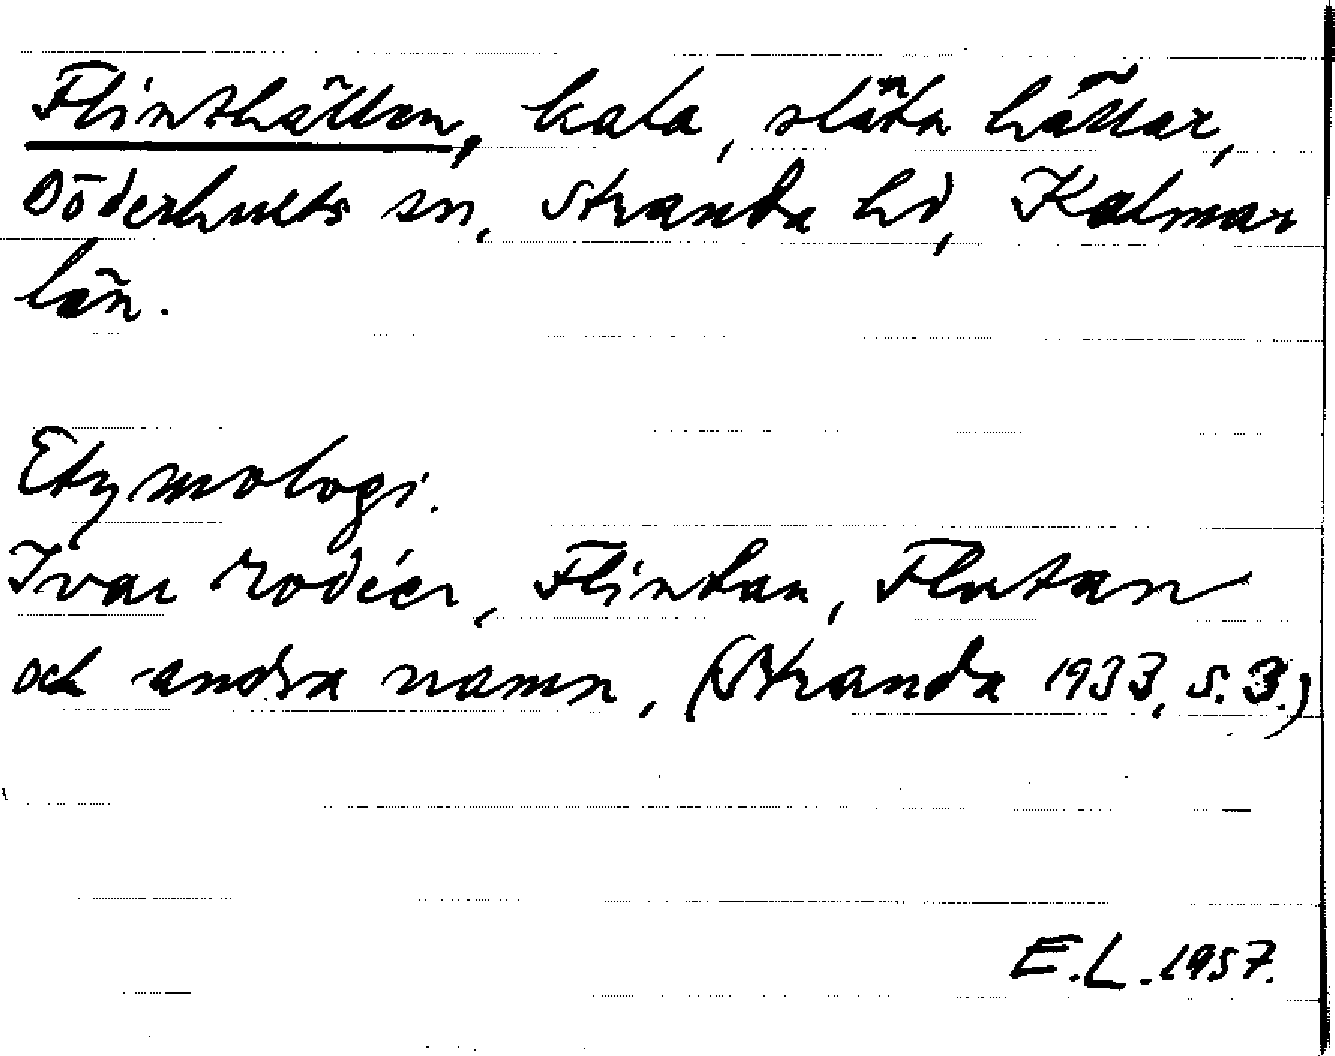 Flinthällen, kala, släta hällar,
Döderhults sn, Stranda hd, Kalmar
län.
Etymologi.
Ivar Modéer, Flintan, Flutan
och andra namn, (Stranda 1933, s. 3.)
E.L. 1957.